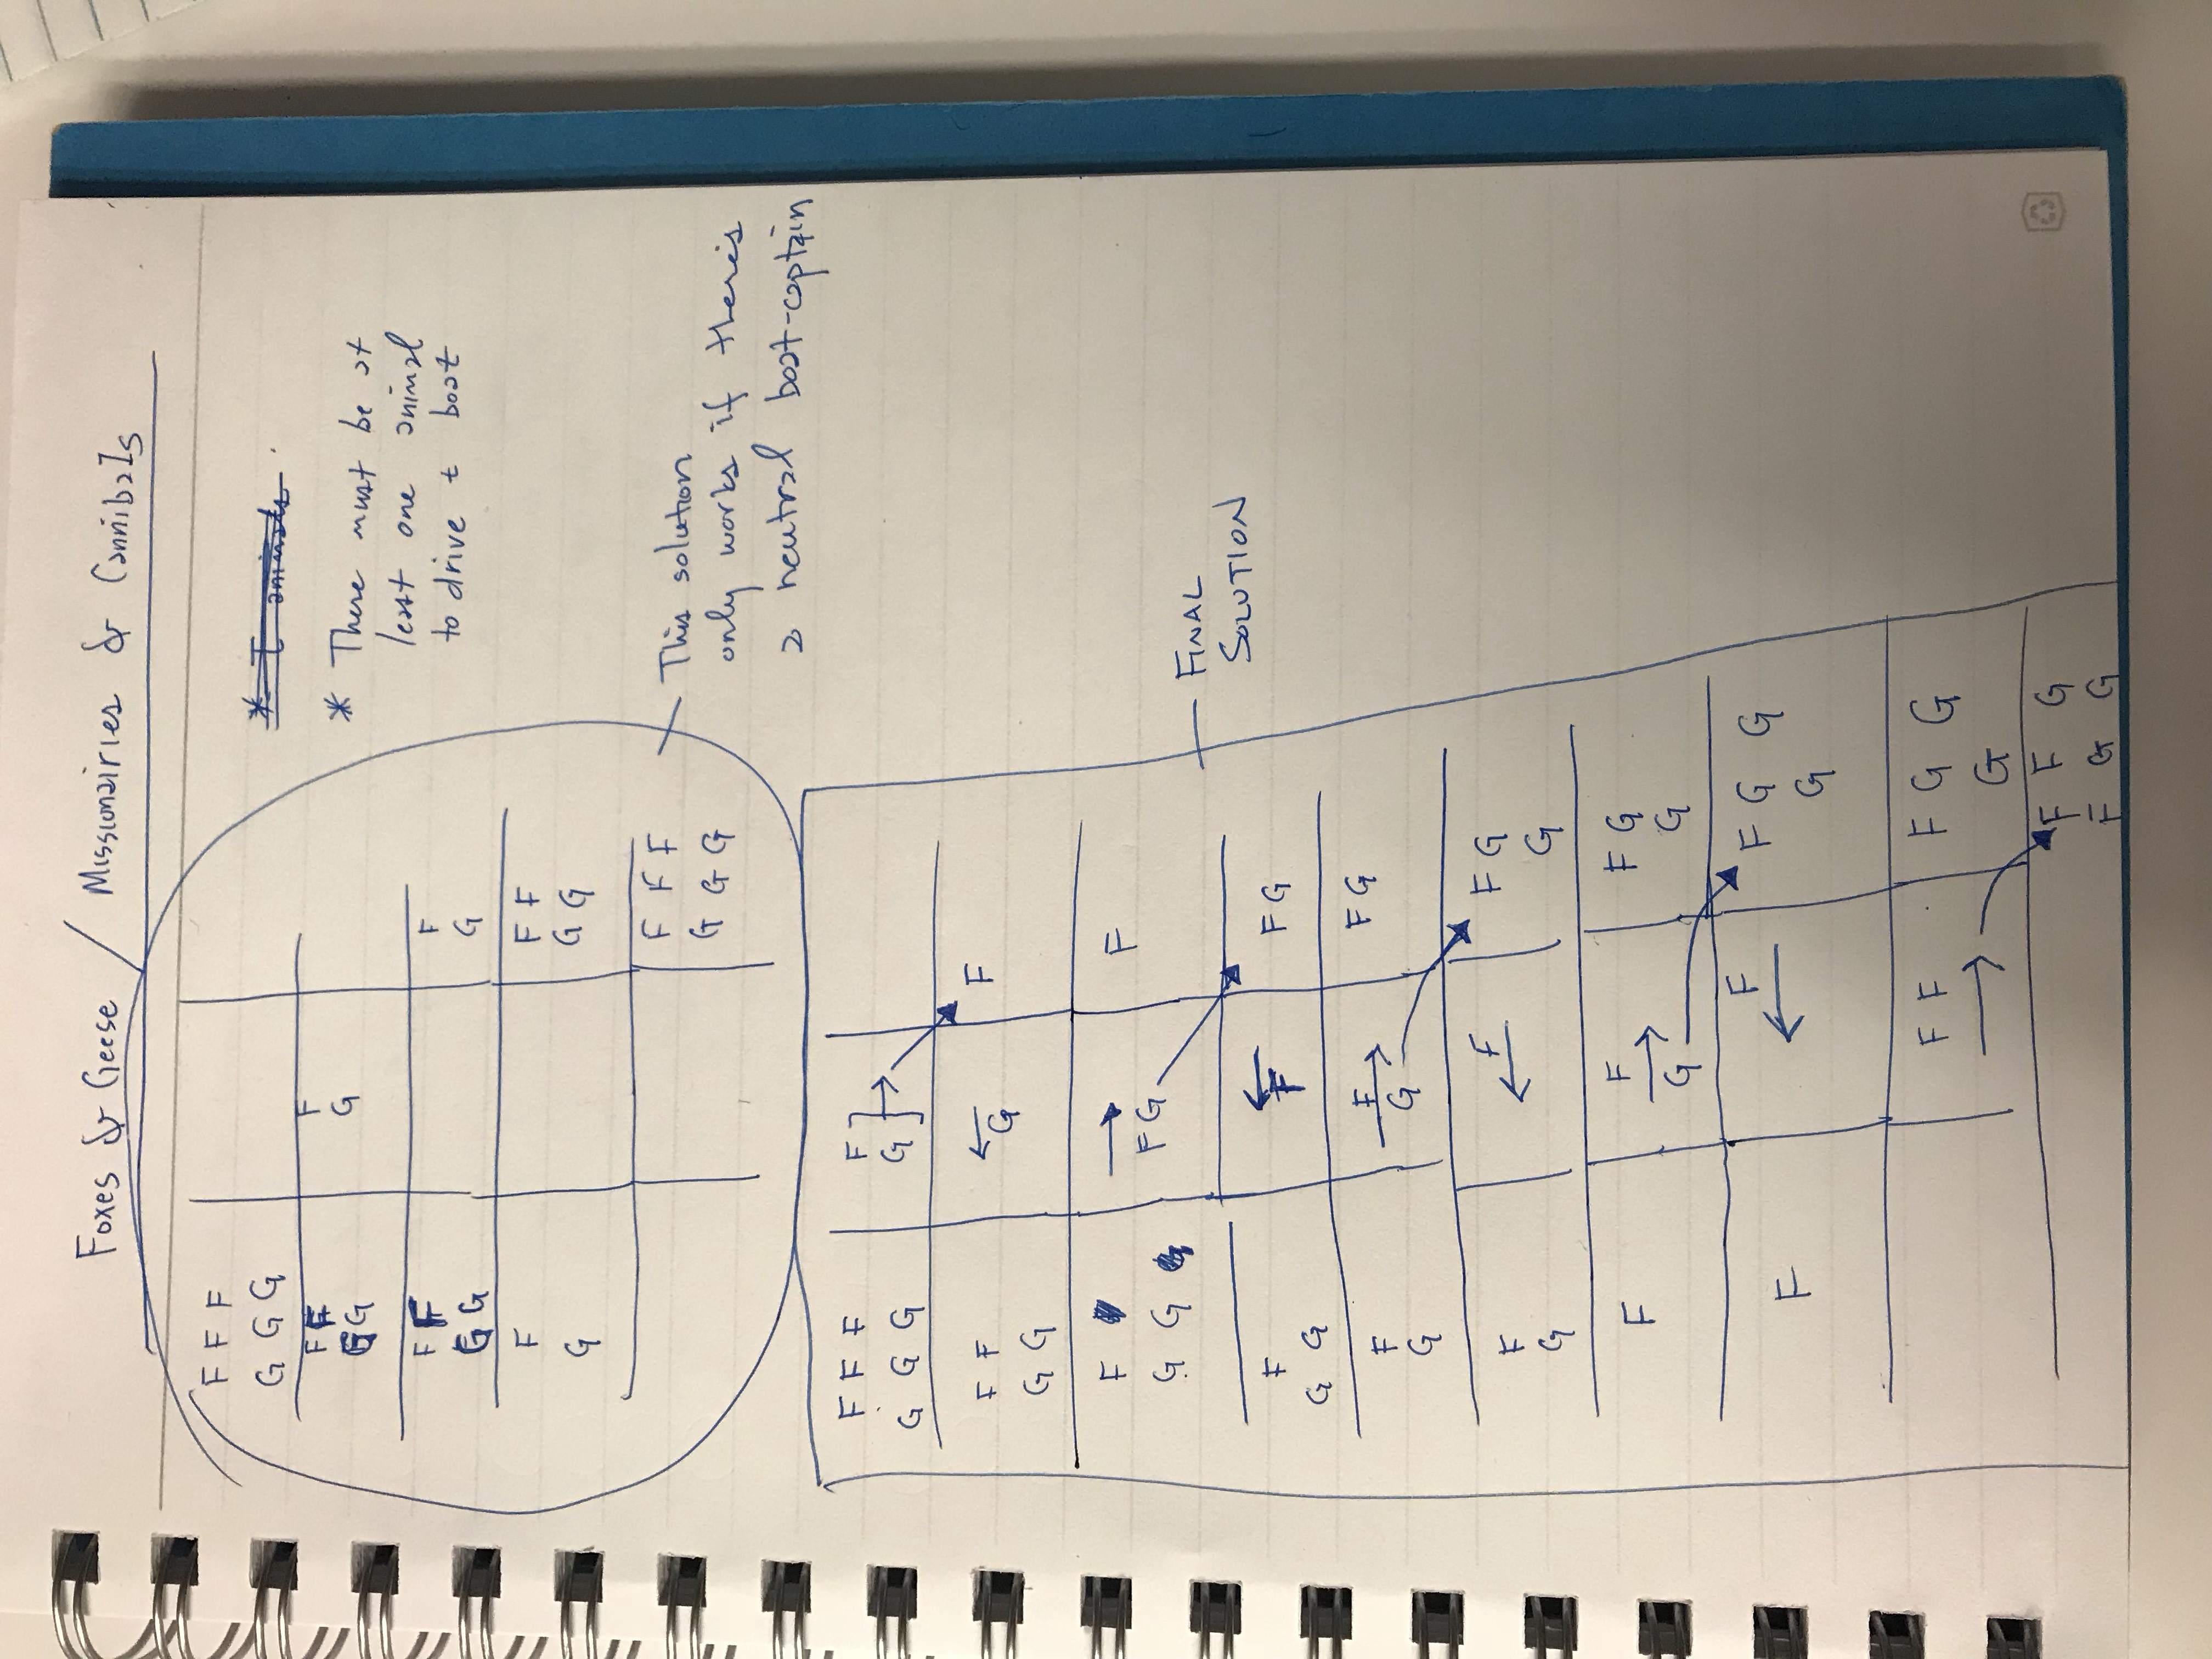 Foxes & Geese / Missionairies & Cannibals
F F F
G G G
F F F
G G G
F F F
G G G
F F F
G G G
F F F
G G G
* There must be at
least one animal
to drive t boat
This solution
only works if there's
a neutral boat-captain
F F F F
G G G G
F F G F
G G
F F G F
G G
F F F G
G G
F F F G
G G
F F F G
G G
F F F G
G G
F F F G G
G
F F F G G
G
F F G
F G G
FINAL
SOLUTION